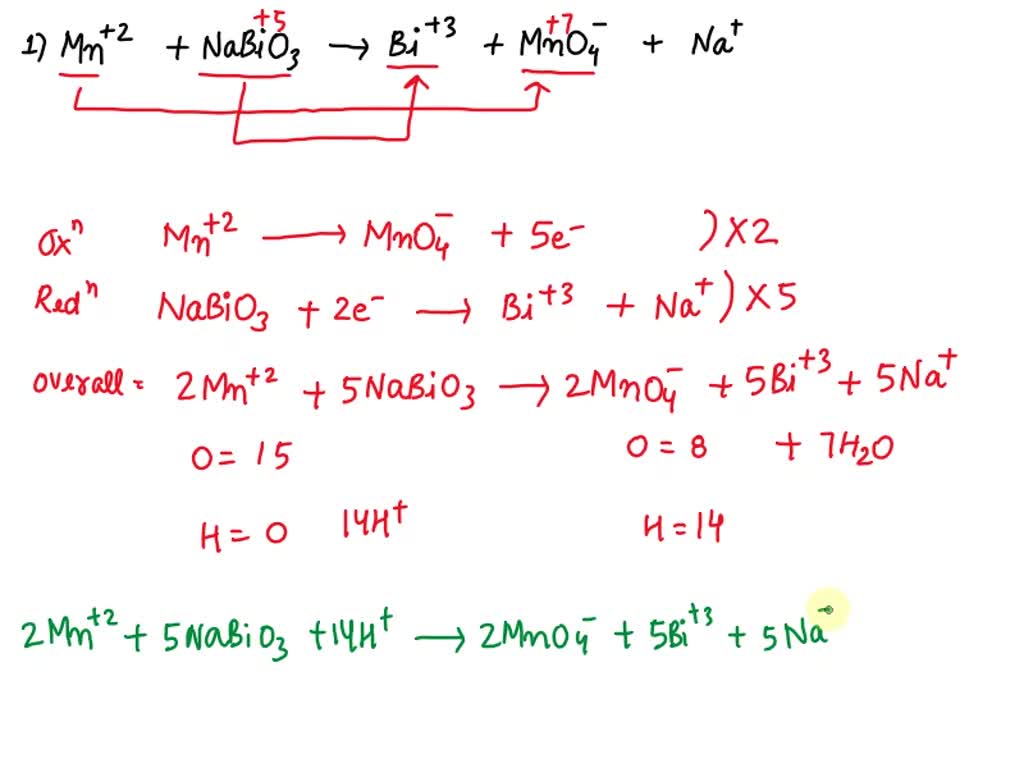 +5 +7
1) Mn+2 + NaBiO3 → Bi+3 + MnO4− + Na+
Oxn Mn+2 → MnO4− + 5e− ) X 2
Redn NaBiO3 + 2e− → Bi+3 + Na+ ) X 5
Overall = 2Mn+2 + 5NaBiO3 → 2MnO4− + 5Bi+3 + 5Na+
O = 15 O = 8 + 7H2O
H = 0 14H+ H = 14
2Mn+2 + 5NaBiO3 + 14H+ → 2MnO4− + 5Bi+3 + 5Na−